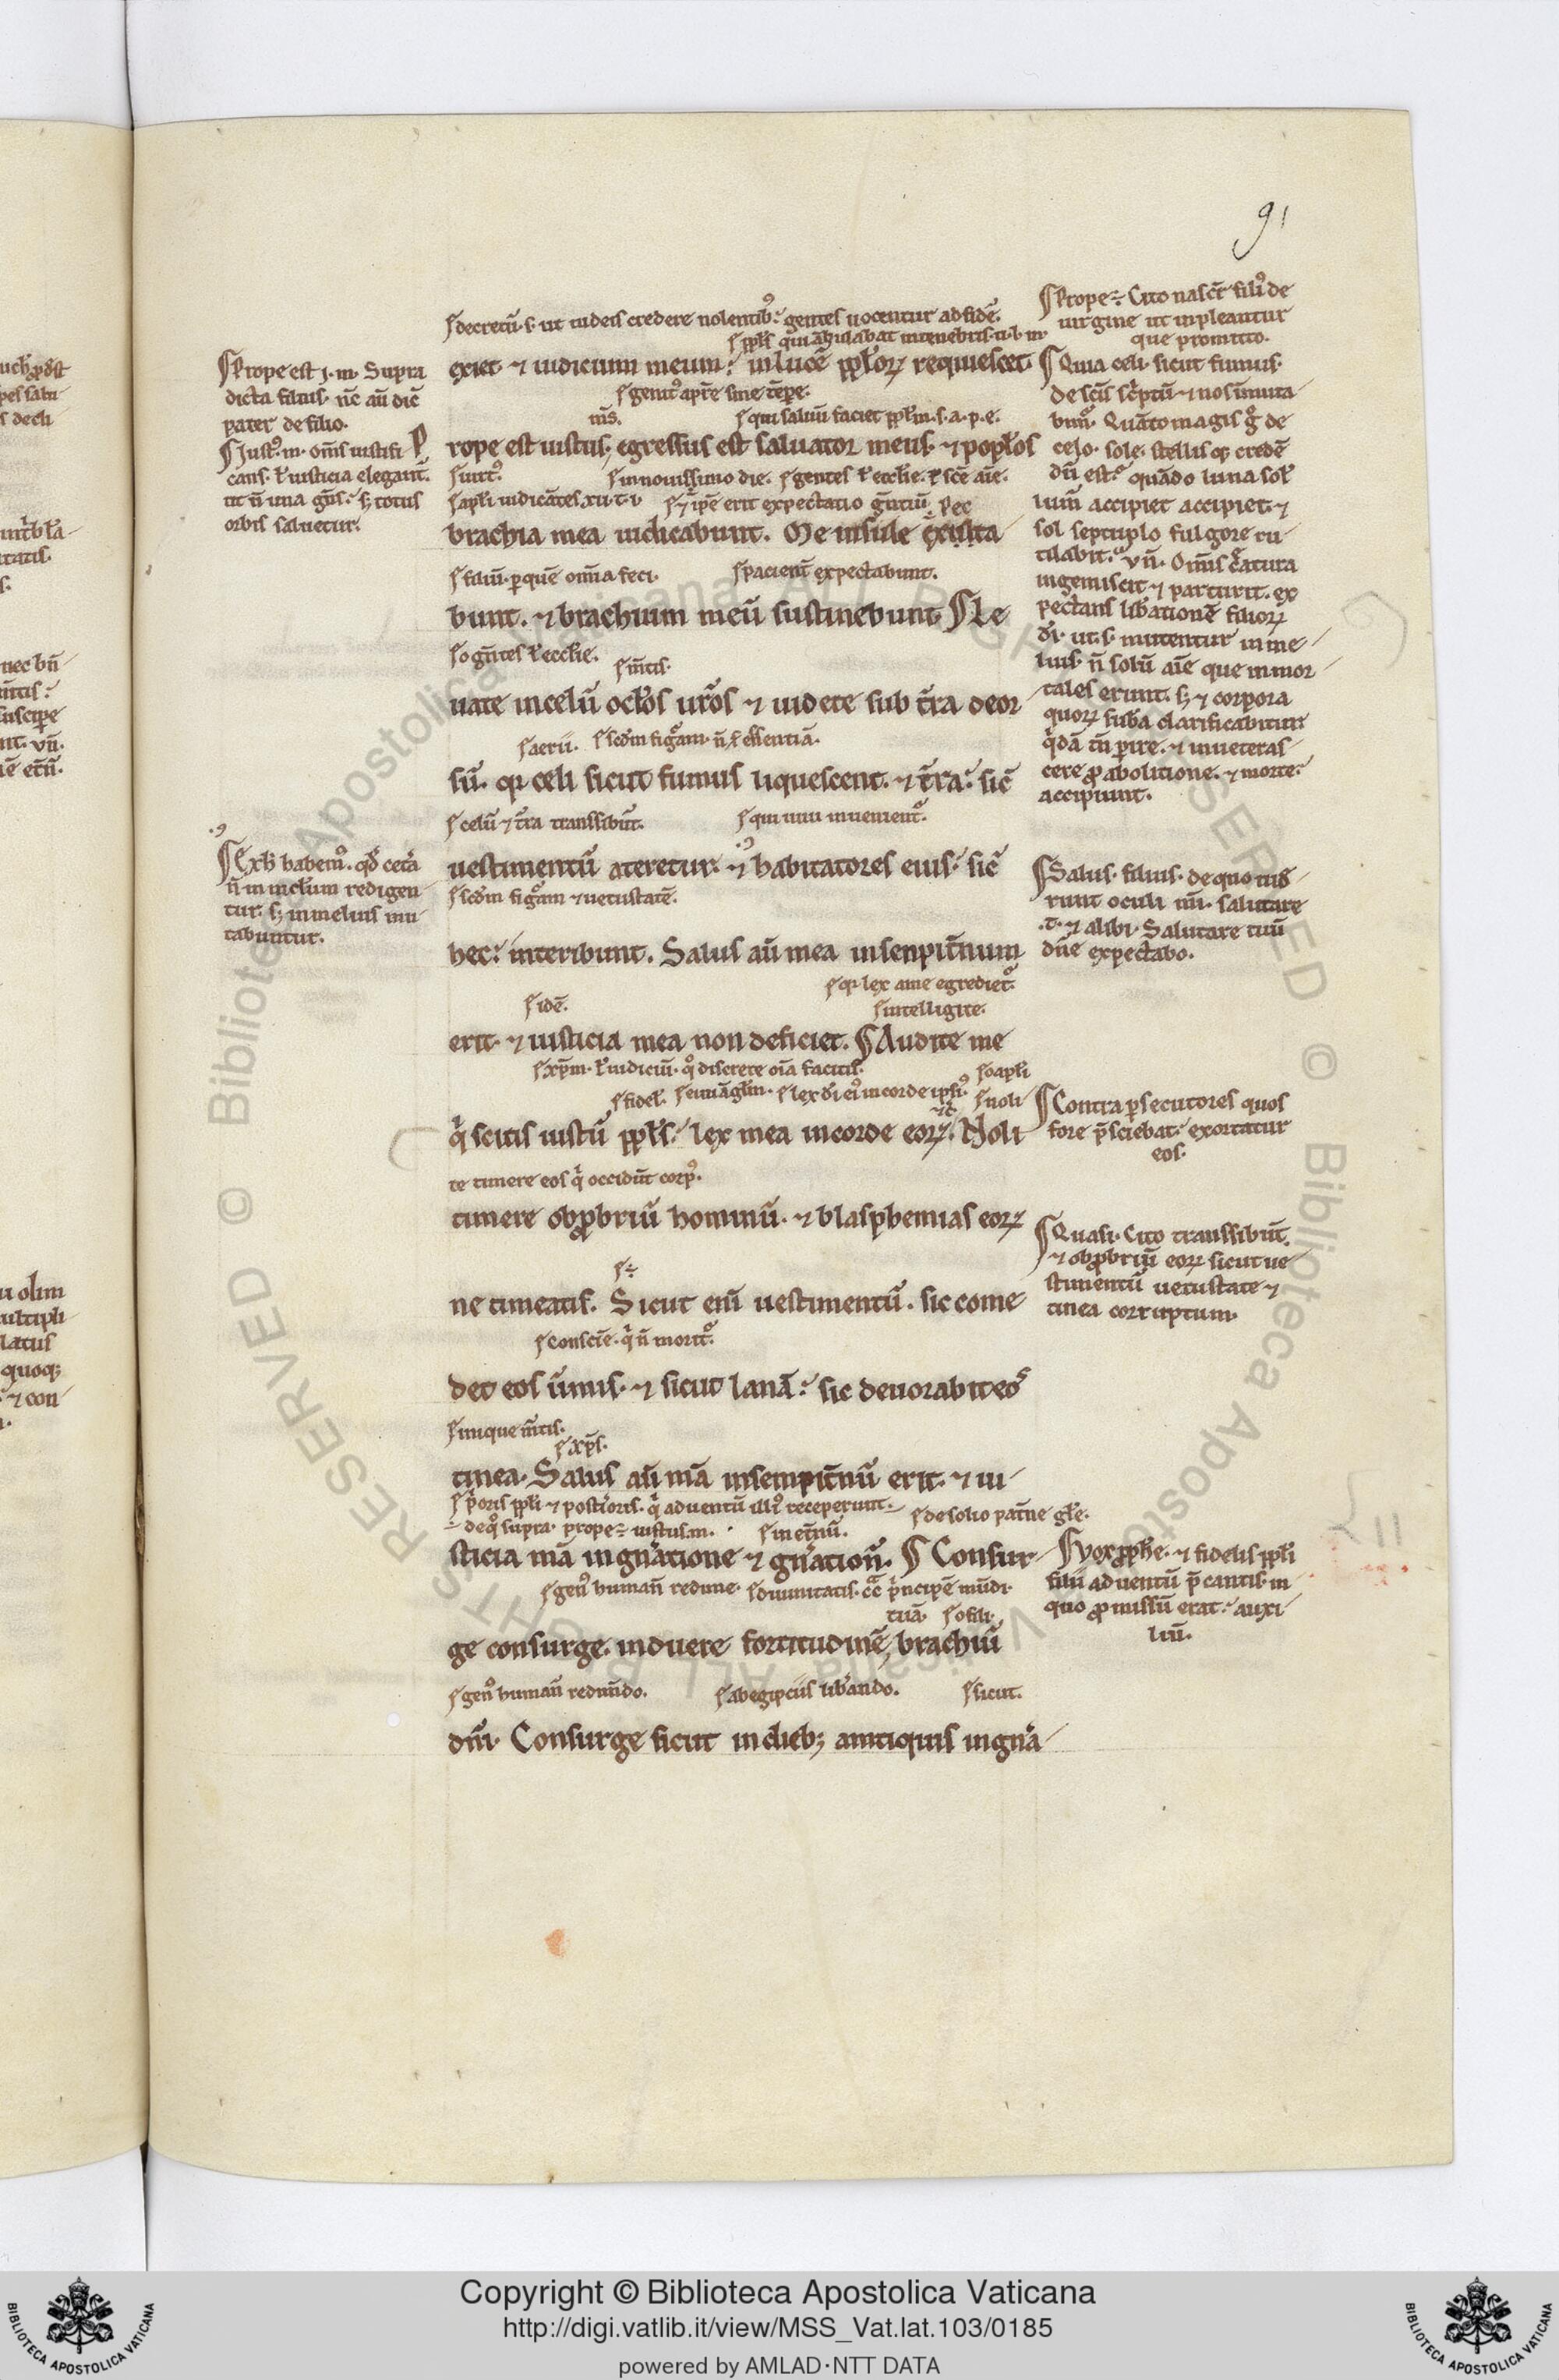 91
decretū·s· ut iudeis credere nolentib⁹ gentes uocentur ad fidē.
exiet ⁊ iudicium meum: in lucē ppl̄oꝝ requiescet
genit⁹ a pr̄e sine tēpore·
qui saluū faciet ppl̄m·s·a·p·e·
rope est iustus, egressus est saluator meus· ⁊ popl̄os
in nouissimo die· gentes l̄ eccl̄ie· l̄ sc̄e aīe·
⁊ ip̄e erit expectatio gn̄tiū
brachia mea iudicabunt. Me insule exspecta
filiū· per quē om̄ia feci· pacient̄ expectabunt.
bunt. ⁊ brachium meū sustinebunt Le
o gn̄tes l̄ eccl̄ie. mn̄tis·
uate in celū ocl̄os ur̄os ⁊ uidete sub t̄ra deor
aerii. scd̄m figurā· n̄ s̄ essentiā.
sū. qꝫ celi sicut fumus liquescent. ⁊ t̄ra: sic̄
celū ⁊ t̄ra transsibūt. qui uiui inuenient᷑
uestimentū ateretur· ⁊ habitatores eius: sic̄
scd̄m figurā ⁊ uetustatē.
hec: interibunt. Salus aū mea in senpit̄num
qꝫ lex a me egrediet᷑
idē. intelligite.
erit· ⁊ iusticia mea non deficiet. Audite me
xp̄m· l̄ iudiciū· discrete oīa facitis· o apl̄i
fidel. euuāglm̄. lex di ei⁹ in corde ipsi⁹ noli
q̇ scitis iustū ppl̄s: lex mea in corde eoꝝ. Noli
te timere eos q̇ occidūt corp⁹·
timere obprobriū hominū· ⁊ blasphemias eoꝝ
ne timeatis. Sicut enī uestimentū· sic come
conscīe· q̇ n̄ morit᷑·
det eos ūmis· ⁊ sicut lanā: sic deuorabit eos
inique mn̄tis·
xp̄s·
tinea· Salus aū mā in sempit̄nū erit· ⁊ iu
prioris ppl̄i ⁊ posterioris· q̇ aduentū illi⁹ receperunt· de solio pat̄ne gl̄e·
supra· prope÷ iustus·m· in et̄nū·
sticia mā in gn̄atione ⁊ gn̄ationū. Consur
gen⁹ human̄ redime· diuinitatis· principē mūdi·
tuā· o fili
ge consurge· induere fortitudinē, brachiū
gen⁹ human̄ redimēdo. ab egipciis lib̄ando. sicut.
dn̄i· Consurge sicut in dieb; antiquis in gn̄a
Prope est i· m· Supra
dicta filius· nc̄ aū dic̄
pater de filio·
Just⁹·m· om̄s iustifi P
cans· l̄ iusticia elegant̄·
ut n̄ una gn̄s: sꝫ totus
orbis saluetur·
Ex h̄ habem⁹· qd̄ cetera
n̄ in nichilum redigen
tur· sꝫ in melius mu
tabuntur.
Prope÷ Cito nascet̄ fili⁹ de
uirgine ut inpleantur
que promitto.
Quia celi· sicut fumus·
de sc̄is sc̄ptū· ⁊ nos īmuta
bim᷑· Quāto magis g̊ de
celo· sole· stellis qꝫ credē
dū est: quādo luna sol̄
lum̄ accipiet accipiet· ⁊
sol septuplo fulgore ru
tilabit. Vn̄· Omīs c̄atura
ingemiscit ⁊ parturit· ex
pectans lib̄ationē filioꝝ
di· ut·s· mutentur in me
lius· n̄ solū aīe que inmor
tales erunt· sꝫ ⁊ corpora
quoꝝ suba clarificabitur·
q̇dā tn̄ perire· ⁊ inueteras
cere pro abolitione· ⁊ morte
accipiunt.
Salus· filius· de quo uide
runt oculi mī· salutare
.t. ⁊ alibi· Salutare tuū
dn̄e expectabo.
Contra persecutores quos
fore presciebat: exortatur
eos·
Quasi· Cito transsibūt.
⁊ obprobriū eoꝝ sicut ue
stimentū uetustate ⁊
tinea corruptum·
Vox prophe· ⁊ fidelis ppl̄i
filii aduentū p̄cantis· in
quo promissū erat: auxi
liū.
Copyright © Biblioteca Apostolica Vaticana
http://digi.vatlib.it/view/MSS_Vat.lat.103/0185
powered by AMLAD·NTT DATA
BIBLIOTECA APOSTOLICA VATICANA
BIBLIOTECA APOSTOLICA VATICANA